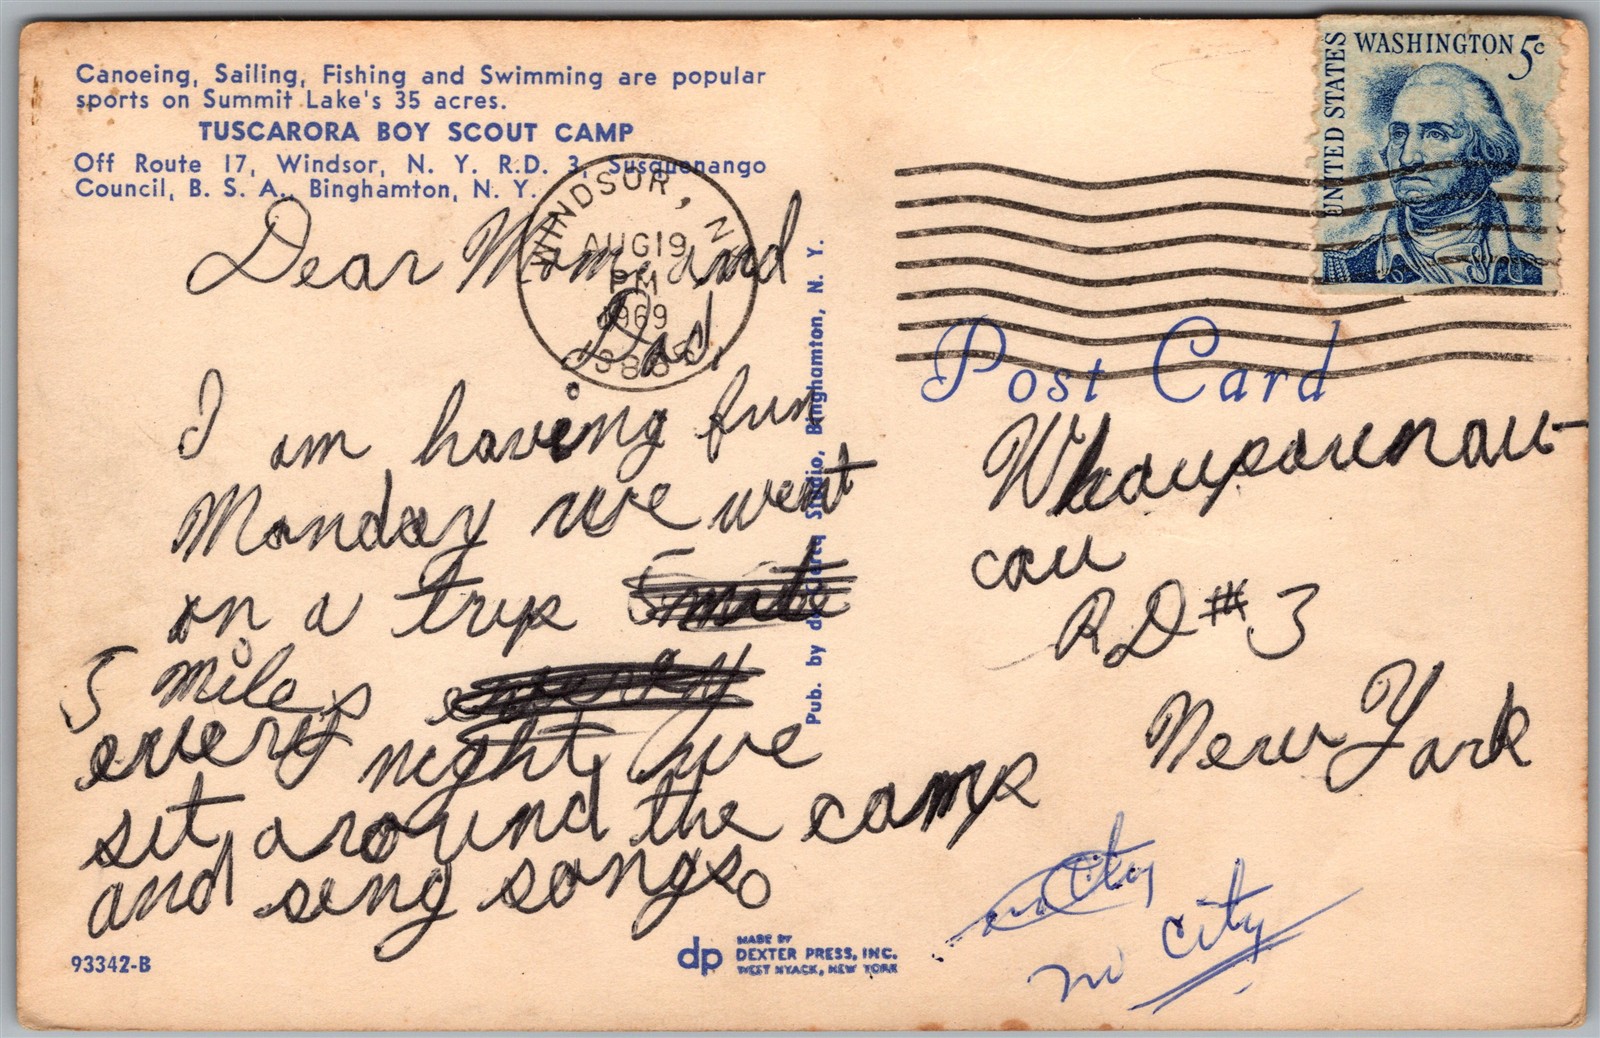 Canoeing, Sailing, Fishing and Swimming are popular
sports on Summit Lake's 35 acres.
TUSCARORA BOY SCOUT CAMP
Off Route 17, Windsor, N. Y. R.D. 3, Susquenango
Council, B. S. A., Binghamton, N. Y.
WINDSOR, N
AUG 19
PM
1969
13865
Dear Mom and
Dad,
I am having fun
Monday we went
on a trip
5 miles
every night we
sit around the camp
and sing songs.
93342-B
Pub. by Studio, Binghamton, N. Y.
dp
MADE BY
DEXTER PRESS, INC.
WEST NYACK, NEW YORK
UNITED STATES
WASHINGTON 5c
Post Card
RD #3
New York
no City
no City